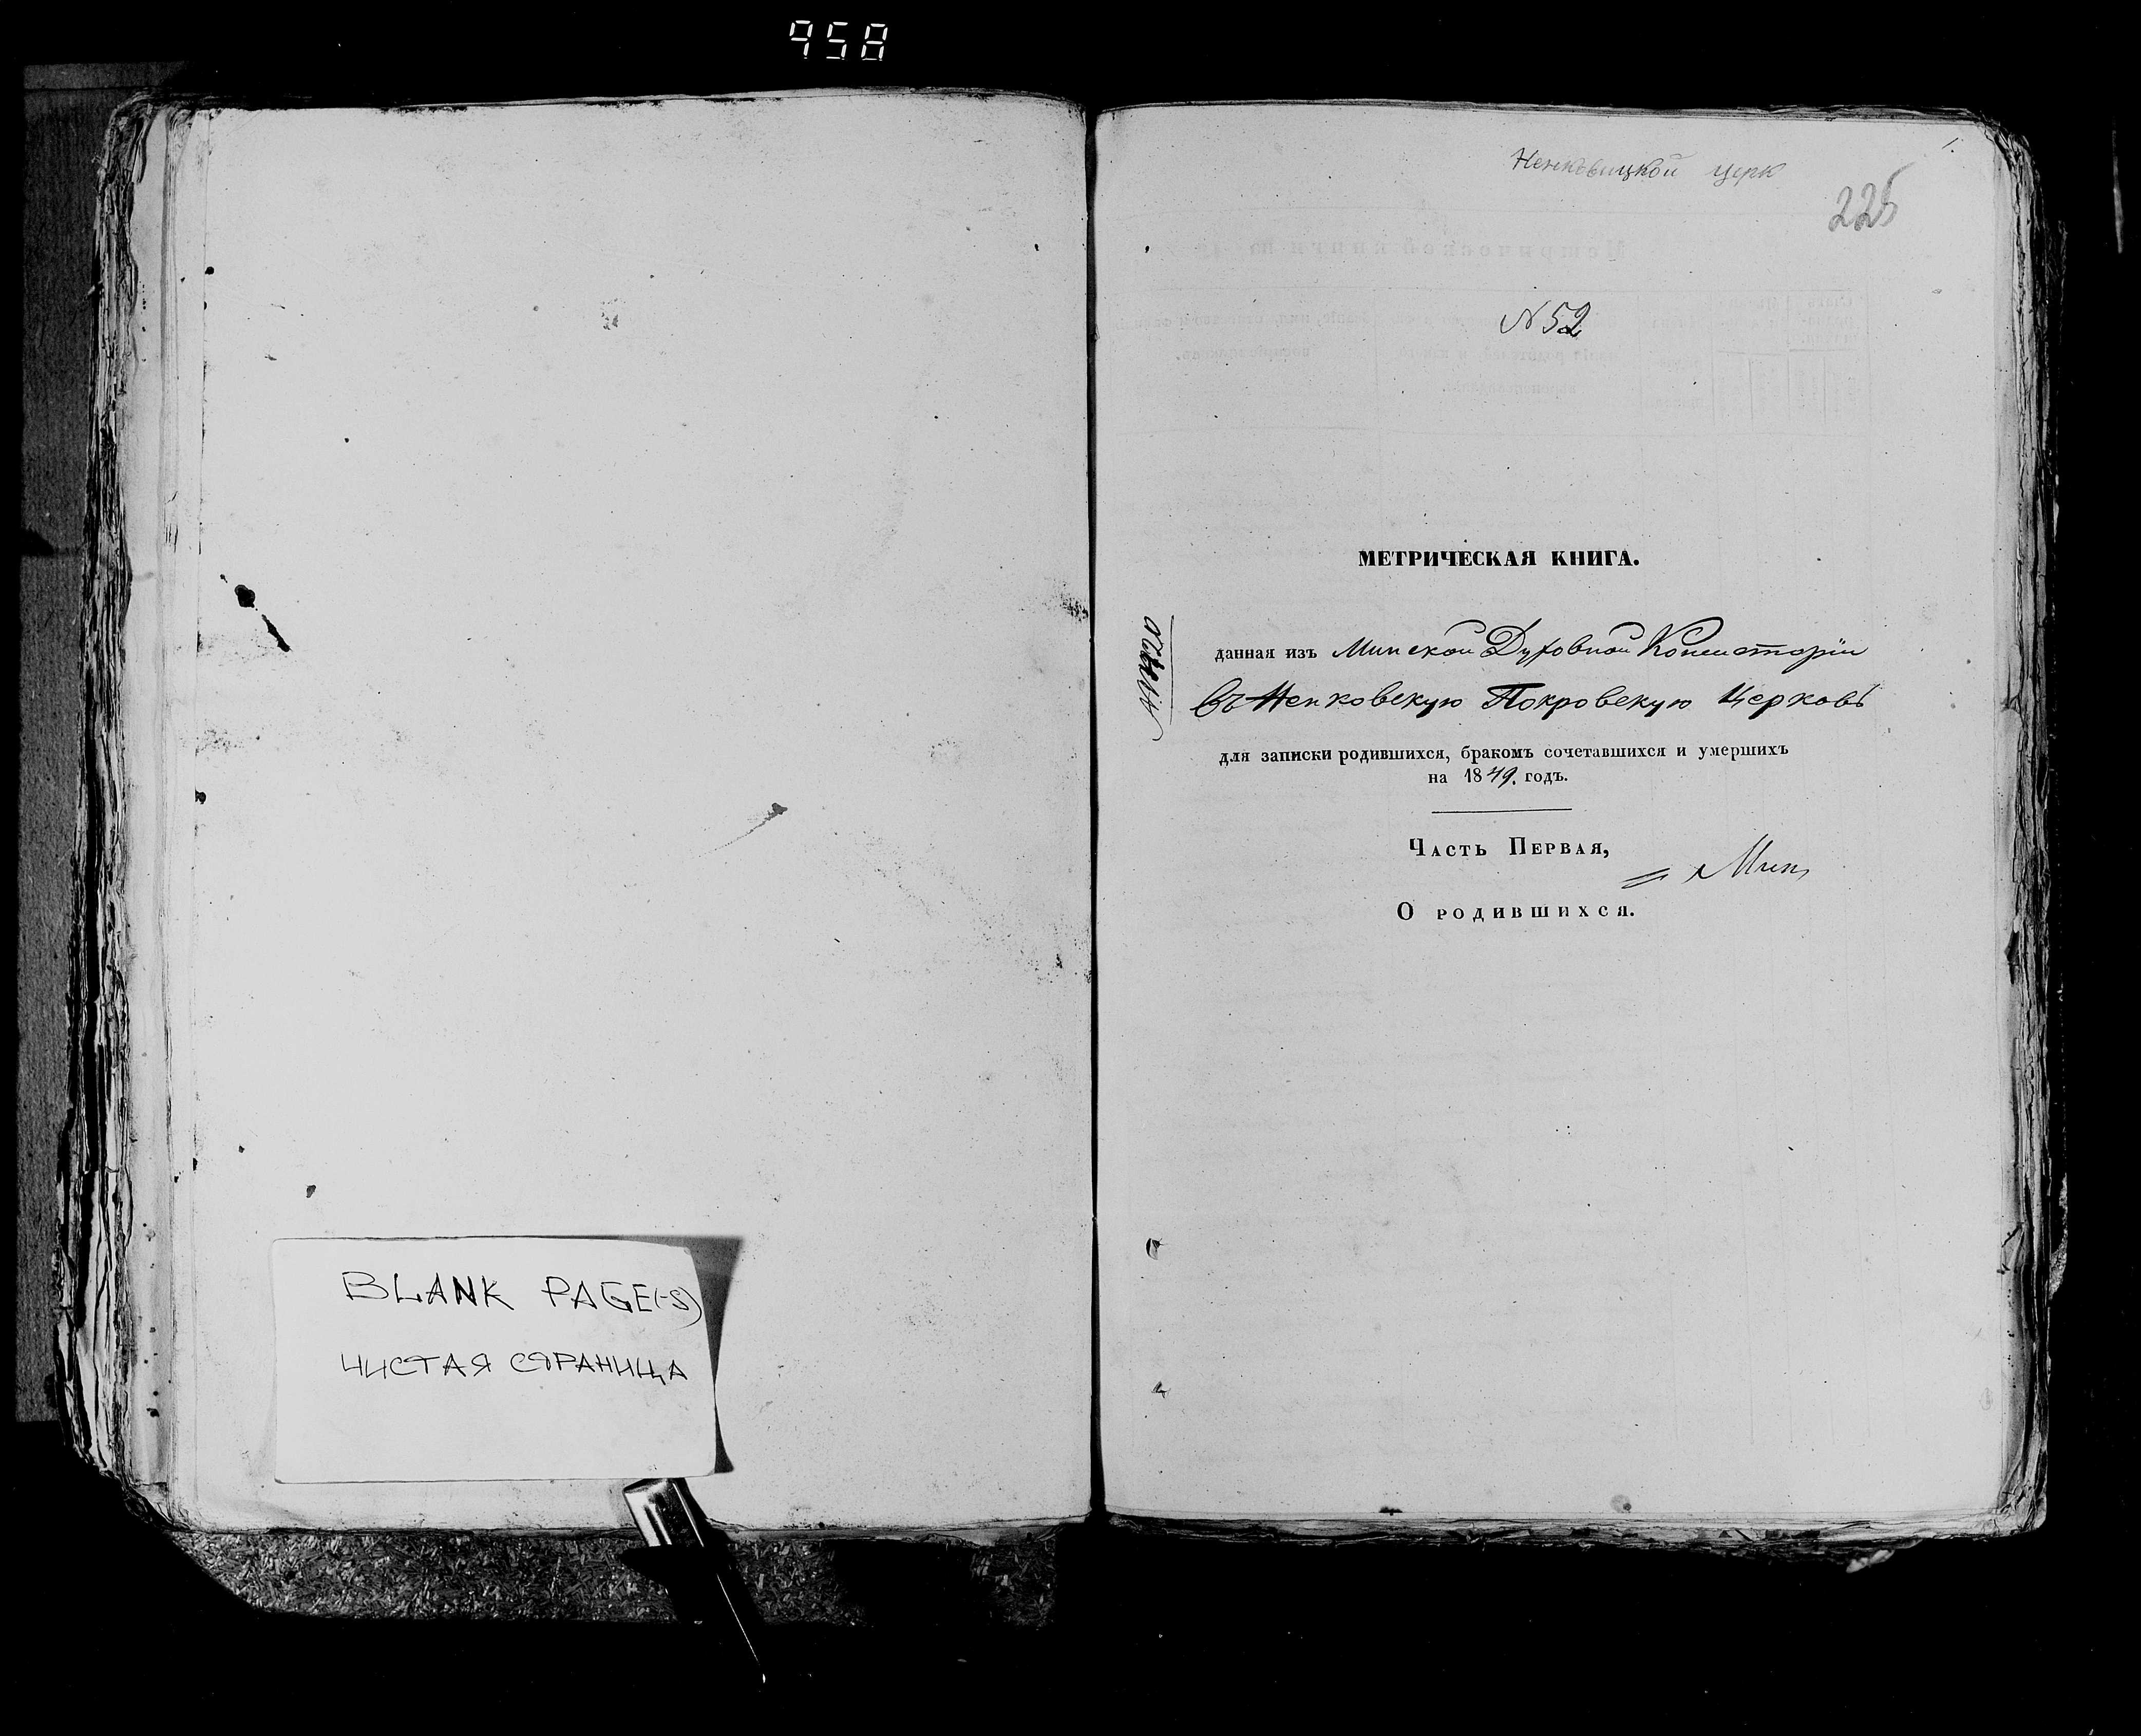 958
BLANK PAGE(-S)
ЧИСТАЯ СТРАНИЦА
1.
Ненковицкой церк
225
N 52
МЕТРИЧЕСКАЯ КНИГА.
данная изъ Минской Духовной Консисторіи
въ Ненковскую Покровскую Церковь
для записки родившихся, бракомъ сочетавшихся и умершихъ
на 1849. годъ.
Часть Первая,
О родившихся.